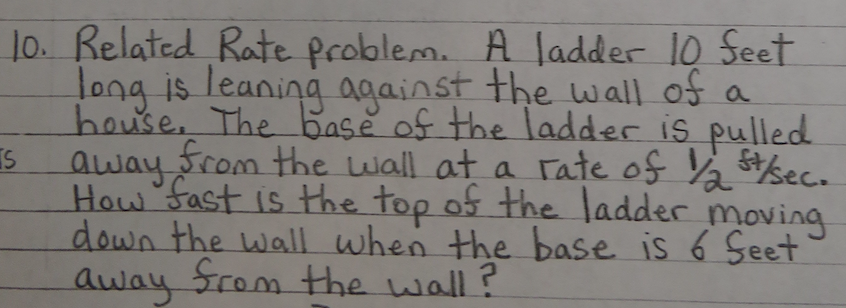 10. Related Rate problem. A ladder 10 feet
long is leaning against the wall of a
house. The base of the ladder is pulled
away from the wall at a rate of 1/2 ft/sec.
How fast is the top of the ladder moving
down the wall when the base is 6 feet
away from the wall?